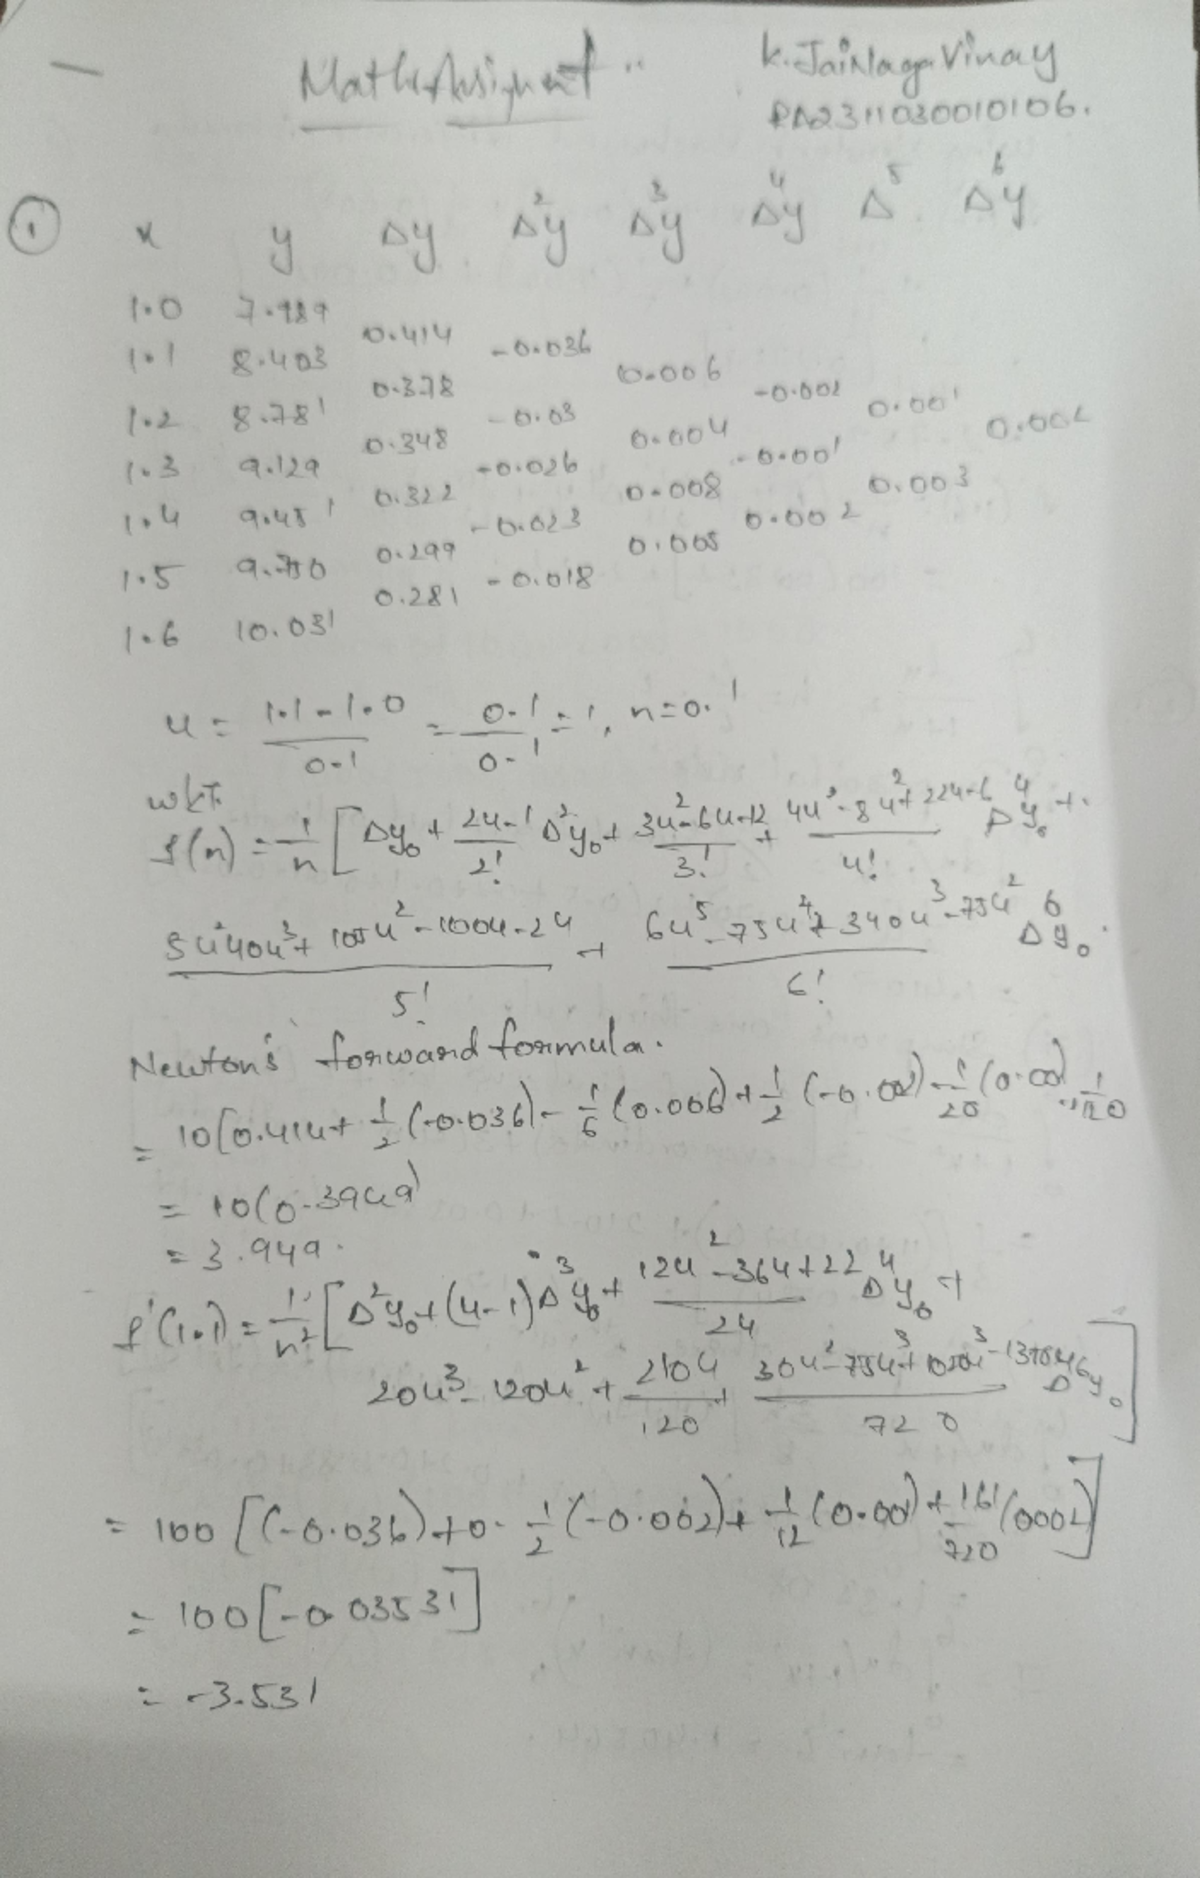 Math Assignment..
K. Jai Naga Vinay
RA2311030010106.
① x y Δy Δ²y Δ³y Δ⁴y Δ⁵ Δ⁶y
1.0 7.989
0.414
1.1 8.403 -0.036
0.378 0.006
1.2 8.781 -0.03 -0.002
0.348 0.004 0.001
1.3 9.129 -0.026 -0.001 0.002
0.322 0.008 0.003
1.4 9.451 -0.023 0.002
0.299 0.005
1.5 9.750 -0.018
0.281
1.6 10.031
u = (1.1-1.0)/0.1 = 0.1/0.1 = 1, n=0.1
WKT
f(n) = 1/n [Δy₀ + 2u-1/2! Δ²y₀ + 3u²-6u+2/3! + 4u³-8u²+22u-6/4! Δ⁴y₀ +.
5u⁴40u³+105u²-100u-24/5! + 6u⁵-75u⁴+340u³-75u²/6! Δ⁶y₀.
Newton's forward formula.
= 10[0.414+1/2(-0.036)-1/6(0.006)+1/2(-0.002)-1/20(0.001) + 1/120
= 10(0.3949)
= 3.949.
f'(1.1) = 1/n² [Δ²y₀+(u-1)Δ³y₀+ 12u²-36u+22/24 Δ⁴y₀ +
20u³-120u²+210u/120 + 30u²-75u³+1050u³-1370u/720 Δ⁶y₀]
= 100[(-0.036)+0-1/2(-0.002)+1/12(0.001)+161/720(0002)]
= 100[-0.03531]
= -3.531